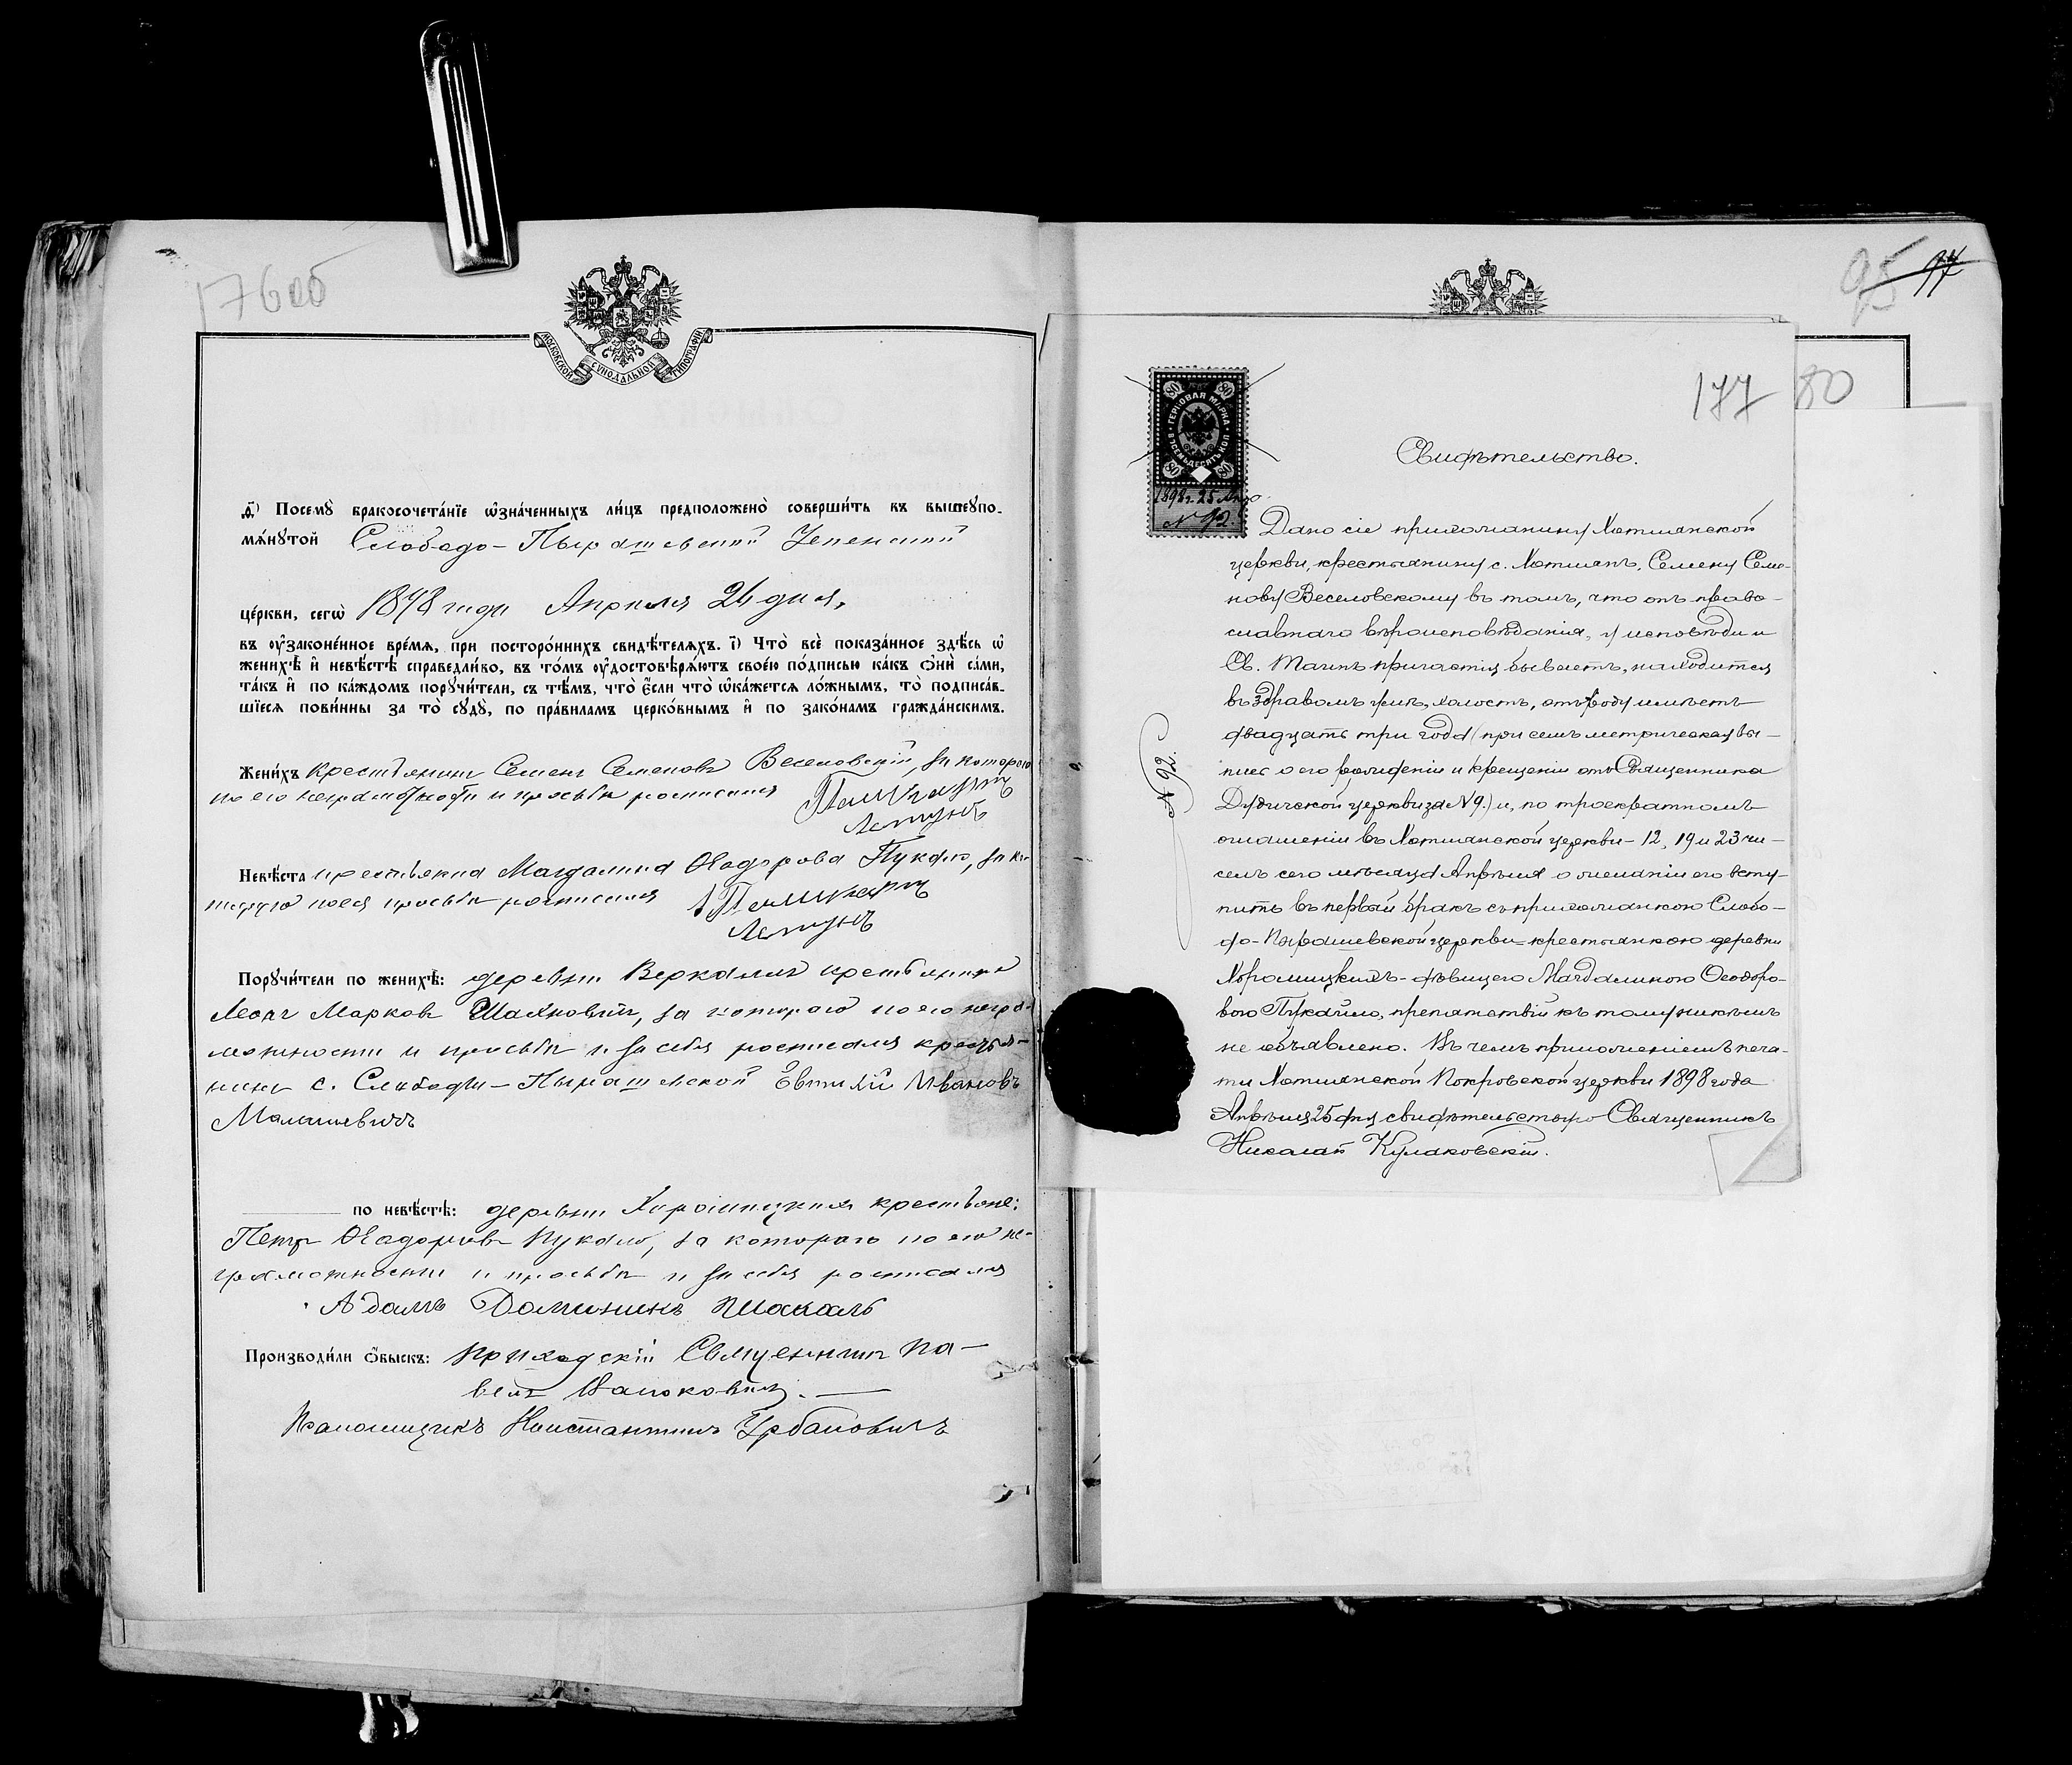 176 об
МОСКОВСКОЙ СѴНОДАЛЬНОЙ ТИПОГРАФІИ
ѳ҃) Посемꙋ̀ бракосочета́нїе ѡ҆зна́ченныхъ ли́цъ предположено̀ соверши́ть въ вышеꙋпо-
мѧ́нꙋтой Слободо-Пырашевской Успенской
це́ркви, сегѡ̀ 1898 года Апреля 26 дня,
въ ᲂу҆зако́ненное вре́мѧ, при посторо́ннихъ свидѣ́телѧхъ. і҃) Что̀ всѐ пока́занное здѣ́сь ѡ҆
женихѣ̀ и҆ невѣ́стѣ справедли́во, въ то́мъ ᲂу҆достовѣрѧ́ютъ свое́ю по́дписью ка́къ ѻ҆нѝ са́ми,
та́къ и҆ по ка́ждомъ порꙋчи́тели, съ тѣ́мъ, что̀ є҆́сли что̀ ѡ҆ка́жетсѧ ло́жнымъ, то̀ подписа́в-
шїесѧ пови́нны за то̀ сꙋдꙋ̀, по пра́виламъ церко́внымъ и҆ по зако́намъ гражда́нскимъ.
Жени́хъ крестьянинъ Семенъ Семеновъ Веселовскій, за котораго
по его неграмотности и просьбѣ росписался
Невѣ́ста крестьянка Магдалина Ѳеодорова Пукало, за ко-
торую по ея просьбѣ росписался
Порꙋчи́тели по женихѣ̀: деревни Веркалы крестьянинъ
Леонъ Марковъ Шахновичъ, за котораго по его негра-
мотности и просьбѣ и за себя росписался крестья-
нинъ с. Слободы-Пырашевской Евтихій Ивановъ
Малишевичъ
по невѣ́стѣ: деревни Хоромицкихъ крестьяне:
Петръ Ѳеодоровъ Пукало, за котораго по его не-
грамотности и просьбѣ и за себя росписался
Адамъ
Производи́ли ѻ҆́быскъ: приходскій Священникъ Па-
велъ
Псаломщикъ Константинъ Урбановичъ
95 97
177 80
80 ГЕРБОВАЯ МАРКА 80
ВОСЕМЬДЕСЯТЪ КОП.
80 80
1898 г. 25 Апр.
№ 92.
№ 92.
Свидѣтельство.
Дано сіе прихожанину Хотлянской
церкви, крестьянину с. Хотлянъ, Семену Семе-
нову Веселовскому въ томъ, что онъ право-
славнаго вѣроисповѣданія, у исповѣди и
Св. Таинъ причастія бываетъ, находится
въ здравомъ умѣ, холостъ, отъ роду имѣетъ
двадцать три года (при семъ метрическая вы-
пись о его рожденіи и крещеніи отъ Священника
Дудичской церкви за № 9.) и, по троекратномъ
оглашеніи въ Хотлянской церкви - 12, 19 и 23 чи-
селъ сего мѣсяца Апрѣля о желаніи его всту-
пить въ первый бракъ съ прихожанкою Слобо-
до-Пырашевской церкви - крестьянкою деревни
Хоромицкихъ - дѣвицею Магдалиною Ѳеодоро-
вою Пукайло, препятствій къ тому никѣмъ
не объявлено. Въ чемъ приложеніемъ печа-
ти Хотлянской Покровской церкви 1898 года
Апрѣля 25 дня свидѣтельствую Священникъ
Николай Кулаковскій.